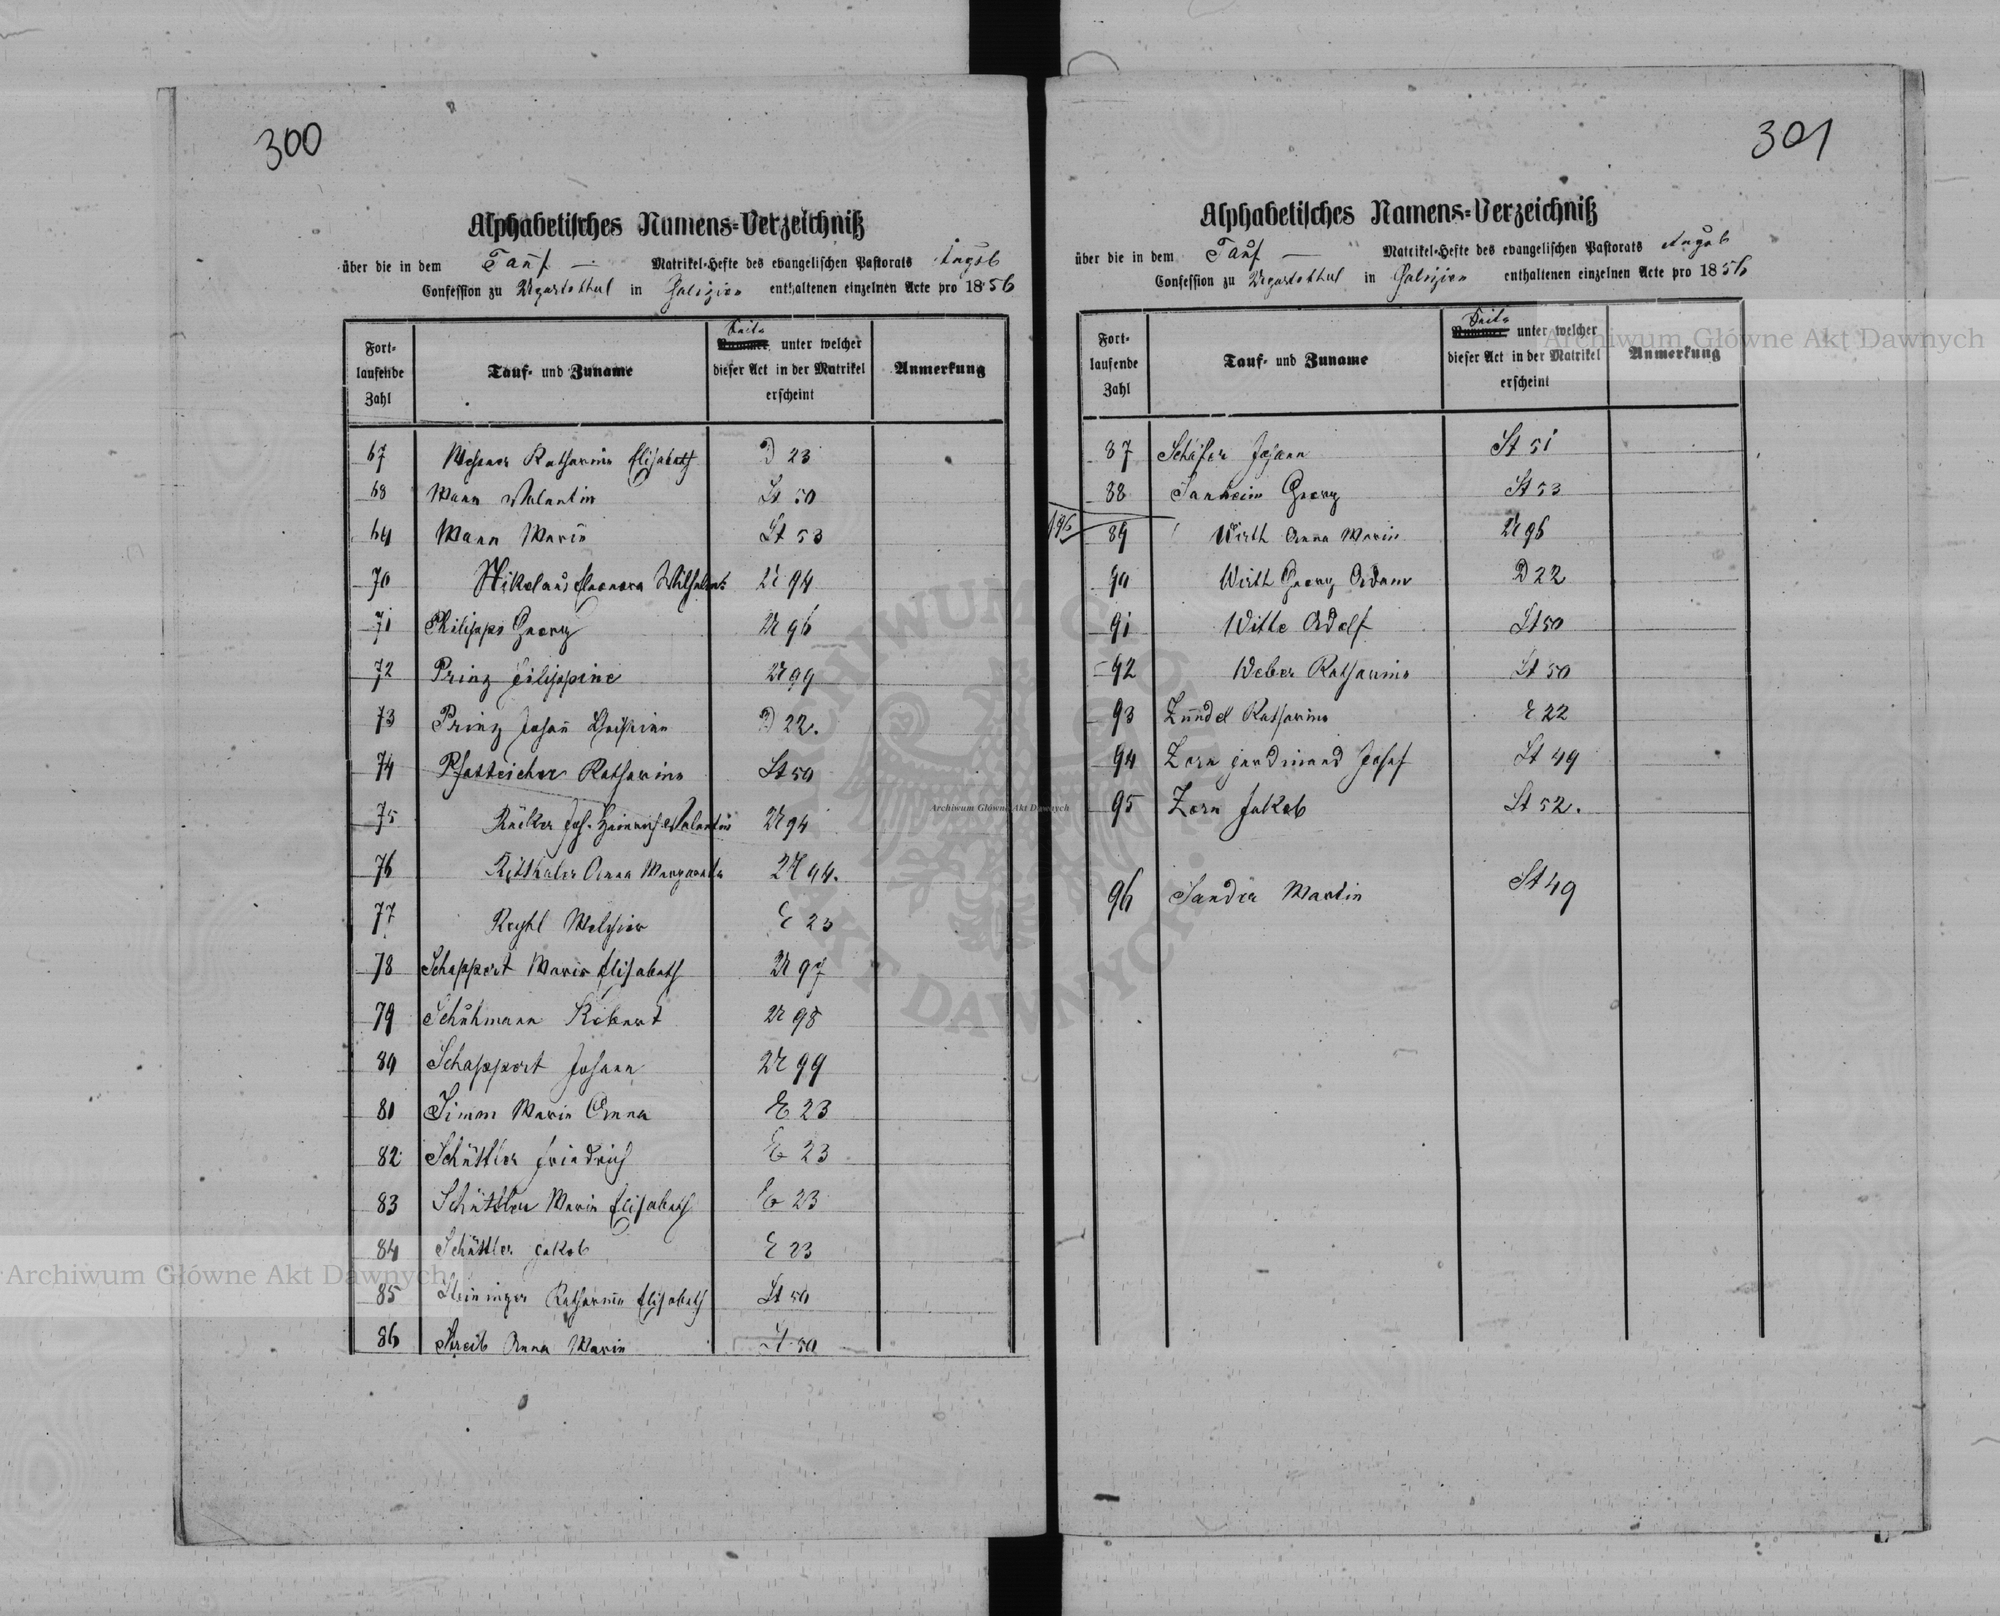 300
Alphabetisches Namens-Verzeichniß
über die in dem Tauf — Matrikel-Hefte des evangelischen Pastorats Augsb
Confession zu Ugartsthal in Galizien enthaltenen einzelnen Acte pro 1856
Fort-laufende Zahl | Tauf- und Zuname | Seite unter welcher dieser Act in der Matrikel erscheint | Anmerkung
67 Messner Katharina Elisabeth D 23
68 Mann Valentin St 50
69 Mann Maria St 53
70 Nikolaus Eleonora Wilhelmi U 94
71 Philipps Georg U 96
72 Prinz Filippine U 99
73 Prinz Johann D 22.
74 Pfatteicher Katharina St 50
75 Räcker Joh. Heinrich Valentin U 94
76 Ritthaler Anna Margaretha U 94.
77 Melchior E 23
78 Schappert Maria Elisabeth U 97
79 Schuhmann Robert U 98
80 Schappert Johann U 99
81 Simon Maria Anna E 23
82 Schüttler Friedrich E 23
83 Schüttler Maria Elisabeth E 23
84 Schüttler Jakob E 23
85 Steininger Katharina Elisabeth St 50
86 Streib Anna Maria St 50
301
Alphabetisches Namens-Verzeichniß
über die in dem Tauf — Matrikel-Hefte des evangelischen Pastorats Augsb
Confession zu Ugartsthal in Galizien enthaltenen einzelnen Acte pro 1856
Fort-laufende Zahl | Tauf- und Zuname | Seite unter welcher dieser Act in der Matrikel erscheint | Anmerkung
87 Schäfer Johann St 51
88 Sanheim Georg St 53
196
89 Wirth Anna Maria U 96
90 Wirth Georg Adam D 22
91 Witte Adolf St 50
92 Weber Katharina St 50
93 Zündel Katharina E 22
94 Zorn Ferdinand Josef St 49
95 Zorn Jakob St 52.
96 Sander Martin St 49
Archiwum Główne Akt Dawnych
Archiwum Główne Akt Dawnych
Archiwum Główne Akt Dawnych
ARCHIWUM GŁÓWNE AKT DAWNYCH